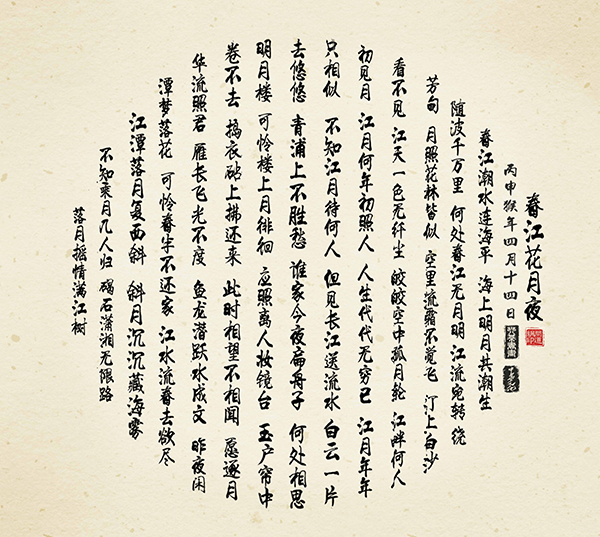 春江花月夜
丙申猴年四月十四日
春江潮水连海平 海上明月共潮生
随波千万里 何处春江无月明 江流宛转绕
芳甸 月照花林皆似 空里流霜不觉飞 汀上白沙
看不见 江天一色无纤尘 皎皎空中孤月轮 江畔何人
初见月 江月何年初照人 人生代代无穷已 江月年年
只相似 不知江月待何人 但见长江送流水 白云一片
去悠悠 青浦上不胜愁 谁家今夜扁舟子 何处相思
明月楼 可怜楼上月徘徊 应照离人妆镜台 玉户帘中
卷不去 捣衣砧上拂还来 此时相望不相闻 愿逐月
华流照君 雁长飞光不度 鱼龙潜跃水成文 昨夜闲
潭梦落花 可怜春半不还家 江水流春去欲尽
江潭落月复西斜 斜月沉沉藏海雾
不知乘月几人归 碣石潇湘无限路
落月摇情满江树